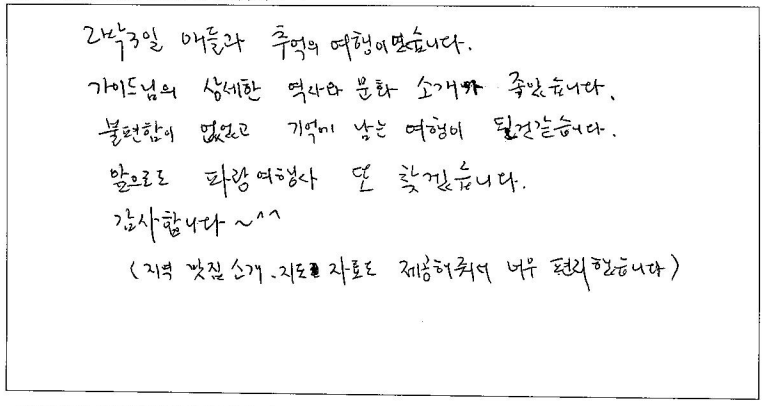 2박3일 애들과 추억의 여행이였습니다.
가이드님의 상세한 역사와 문화 소개가 좋았습니다.
불편함이 없었고 기억에 남는 여행이 될것같습니다.
앞으로도 파랑여행사 또 찾겠습니다.
감사합니다~^^
(지역 맛집 소개, 지도 자료도 제공해줘서 너무 편리했습니다)